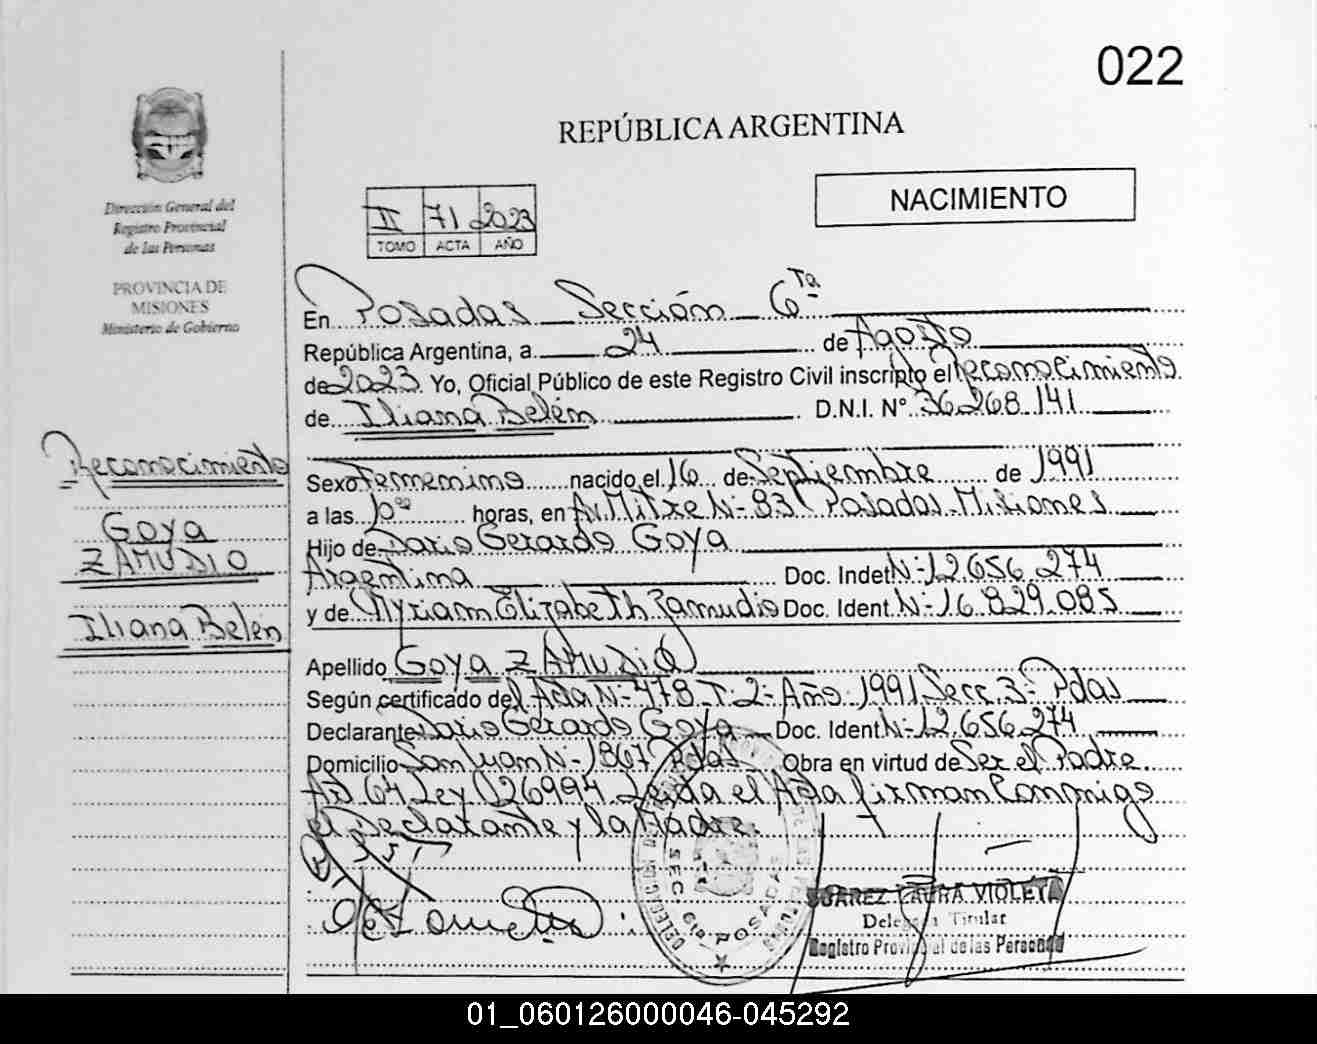 022
REPÚBLICA ARGENTINA
NACIMIENTO
Dirección General del
Registro Provincial
de las Personas
PROVINCIA DE
MISIONES
Ministerio de Gobierno
II 71 2023
TOMO ACTA AÑO
En Posadas Sección 6ta
República Argentina, a 24 de Agosto
de 2023 Yo, Oficial Público de este Registro Civil inscripto el Reconocimiento
de Iliana Belén D.N.I. Nº 36.268.141
Reconocimiento
GOYA
ZAMUDIO
Iliana Belén
Sexo Femenino nacido el 16 de Septiembre de 1991
a las horas, en Av. Mitre Nº 83 Posadas-Misiones
Hijo de Dario Gerardo Goya
Argentina Doc. Indet Nº 12.656.274
y de Myriam Elizabeth Zamudio Doc. Ident. Nº 16.829.085
Apellido GOYA ZAMUDIO
Según certificado del Acta Nº 478 T. 2 Año 1991 Secc. 3 Pdas
Declarante Dario Gerardo Goya Doc. Ident Nº 12.656.274
Domicilio San Juan Nº 1867 Pdas Obra en virtud de Ser el Padre
Art 64 Ley 26994 Leida el Acta firman conmigo
el Declarante y la Madre.
SEC 6ta POSADAS
SUAREZ LAURA VIOLETA
Titular
Registro Provincial de las Personas
01_060126000046-045292